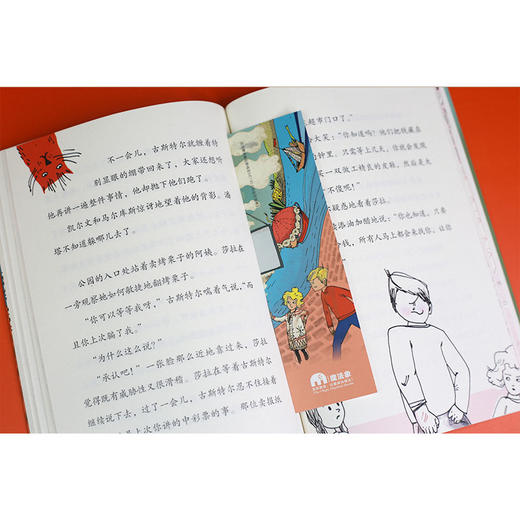 不一会儿，古斯特尔就缠着特
别显眼的绷带回来了，大家还想听
他再讲一遍整件事情，他却抛下他们跑了。
凯尔文和马尔库斯惊讶地望着他的背影，海
塔不知道躲哪儿去了。
公园的入口处站着卖烤栗子的阿姨。莎拉在
一旁观察她如何敏捷地翻烤栗子。
“你可以等等我呀，”古斯特尔喘着气说，“而
且你上次骗了我。”
“为什么这么说？”
“承认吧！”一张脸那么近地靠过来，莎拉
觉得既有威胁性又很滑稽。莎拉在等着古斯特尔
继续说下去，过了一会儿，古斯特尔忍不住接着
上次你讲的中彩票的事。那位卖报纸
超市门口了。”
大笑：“你知道吗？他们把钱藏在
钟里。只需等上几天，你就会发现
一双做工精良的皮鞋，然后是火
不傻呢！”
疑惑地看着莎拉。
添油加醋地说：“你也知道，只要
钱，所有人马上都会来找你，让你
魔法象